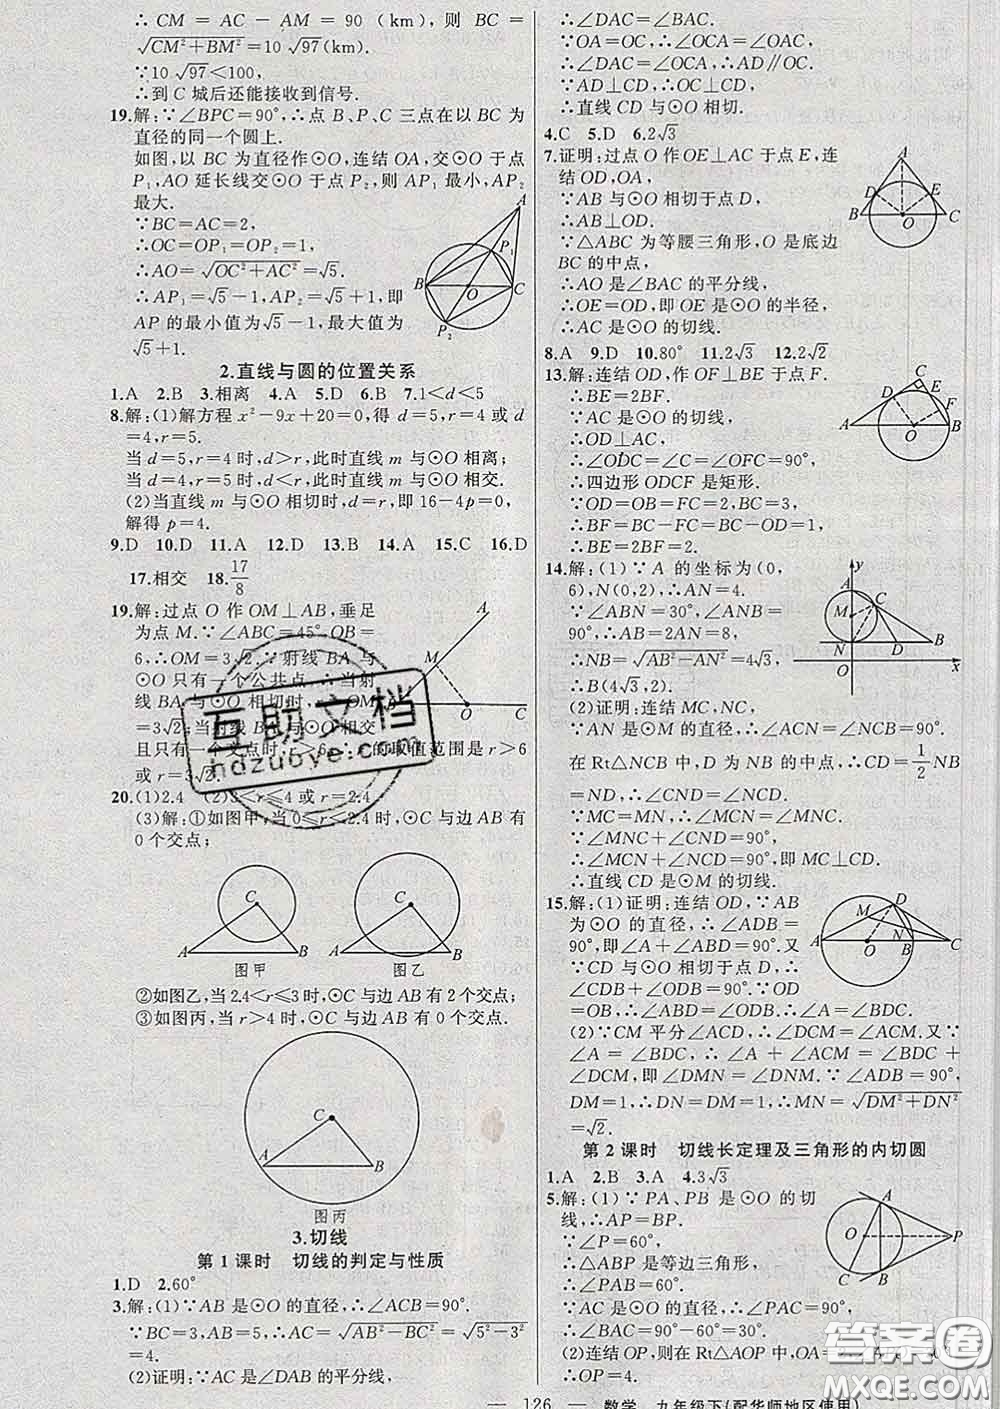 ∴CM=AC-AM=90(km),则 BC=
√CM²+BM²=10√97(km).
∵10√97<100,
∴到C城后还能接收到信号.
19.解:∵∠BPC=90°,∴点B、P、C三点在以BC为
直径的同一个圆上.
如图,以BC为直径作⊙O,连结OA,交⊙O于点
P₁,AO延长线交⊙O于点P₂,则AP₁最小,AP₂
最大.
∵BC=AC=2,
∴OC=OP₁=OP₂=1,
∴AO=√OC²+AC²=√5,
∴AP₁=√5-1,AP₂=√5+1,即
AP的最小值为√5-1,最大值为
√5+1.
A
P₁
B
O
C
P₂
2.直线与圆的位置关系
1.A 2.B 3.相离 4.A 5.D 6.B 7.1<d<5
8.解:(1)解方程x²-9x+20=0,得d=5,r=4或d
=4,r=5.
当d=5,r=4时,d>r,此时直线m与⊙O相离;
当d=4,r=5时,d<r,此时直线m与⊙O相交.
(2)当直线m与⊙O相切时,d=r,即16-4p=0,
解得p=4.
9.D 10.D 11.A 12.D 13.B 14.A 15.C 16.D
17.相交 18.17/8
19.解:过点O作OM⊥AB,垂足
为点M.∵∠ABC=45°,OB=
6,∴OM=3√2.∵射线BA与
⊙O只有一个公共点,∴当射
线BA与⊙O相切时,r=OM
=3√2;当射线BA与⊙O相交
且只有一个交点时,r>6.∴r的取值范围是r>6
或r=3√2.
A
M
O
C
20.(1)2.4 (2)3<r≤4或r=2.4
(3)解:①如图甲,当0≤r<2.4时,⊙C与边AB有
0个交点;
C
A
B
图甲
C
A
B
图乙
②如图乙,当2.4<r≤3时,⊙C与边AB有2个交点;
③如图丙,当r>4时,⊙C与边AB有0个交点.
C
A
B
图丙
3.切线
第1课时 切线的判定与性质
1.D 2.60°
3.解:(1)∵AB是⊙O的直径,∴∠ACB=90°.
∵BC=3,AB=5,∴AC=√AB²-BC²=√5²-3²
=4.
(2)证明:∵AC是∠DAB的平分线,
∴∠DAC=∠BAC.
∵OA=OC,∴∠OCA=∠OAC,
∴∠DAC=∠OCA,∴AD∥OC.
∵AD⊥CD,∴OC⊥CD,
∴直线CD与⊙O相切.
4.C 5.D 6.2√3
7.证明:过点O作OE⊥AC于点E,连
结OD,OA,
∵AB与⊙O相切于点D,
∴AB⊥OD.
∵△ABC为等腰三角形,O是底边
BC的中点,
∴AO是∠BAC的平分线,
∴OE=OD,即OE是⊙O的半径,
∴AC是⊙O的切线.
A
D
E
B
O
C
8.A 9.D 10.80° 11.2√3 12.2√2
13.解:连结OD,作OF⊥BE于点F.
∴BE=2BF.
∵AC是⊙O的切线,
∴OD⊥AC,
∴∠ODC=∠C=∠OFC=90°,
∴四边形ODCF是矩形.
∵OD=OB=FC=2,BC=3,
∴BF=BC-FC=BC-OD=3-2=1,
∴BE=2BF=2.
C
D
E
F
A
O
B
14.解:(1)∵A的坐标为(0,
6),N(0,2),∴AN=4.
∵∠ABN=30°,∠ANB=
90°,∴AB=2AN=8,
∴NB=√AB²-AN²=4√3,
∴B(4√3,2).
(2)证明:连结MC,NC,
∵AN是⊙M的直径,∴∠ACN=∠NCB=90°.
在Rt△NCB中,D为NB的中点,∴CD=1/2 NB
=ND,∴∠CND=∠NCD.
∵MC=MN,∴∠MCN=∠MNC.
∵∠MNC+∠CND=90°,
∴∠MCN+∠NCD=90°,即MC⊥CD.
∴直线CD是⊙M的切线.
y
A
M
C
N
D
B
O
x
15.解:(1)证明:连结OD,∵AB
为⊙O的直径,∴∠ADB=
90°,即∠A+∠ABD=90°.又
∵CD与⊙O相切于点D,∴
∠CDB+∠ODB=90°.∵OD
=OB,∴∠ABD=∠ODB,∴∠A=∠BDC.
(2)∵CM平分∠ACD,∴∠DCM=∠ACM.又∵
∠A=∠BDC,∴∠A+∠ACM=∠BDC+
∠DCM,即∠DMN=∠DNM.∵∠ADB=90°,
DM=1,∴DN=DM=1,∴MN=√DM²+DN²
=√2.
D
M
N
A
O
B
C
第2课时 切线长定理及三角形的内切圆
1.A 2.B 3.A 4.3√3
5.解:(1)∵PA、PB是⊙O的切
线,∴AP=BP.
∵∠P=60°,
∴△ABP是等边三角形,
∴∠PAB=60°.
∵AC是⊙O的直径,∴∠PAC=90°,
∴∠BAC=90°-60°=30°.
(2)连结OP,则在Rt△AOP中,
∴OP=4.
A
O
P
C
B
— 126 — 数学 九年级下(配华师地区使用)
互助文档
hdzuoye.com
答案圈
MXQE.COM